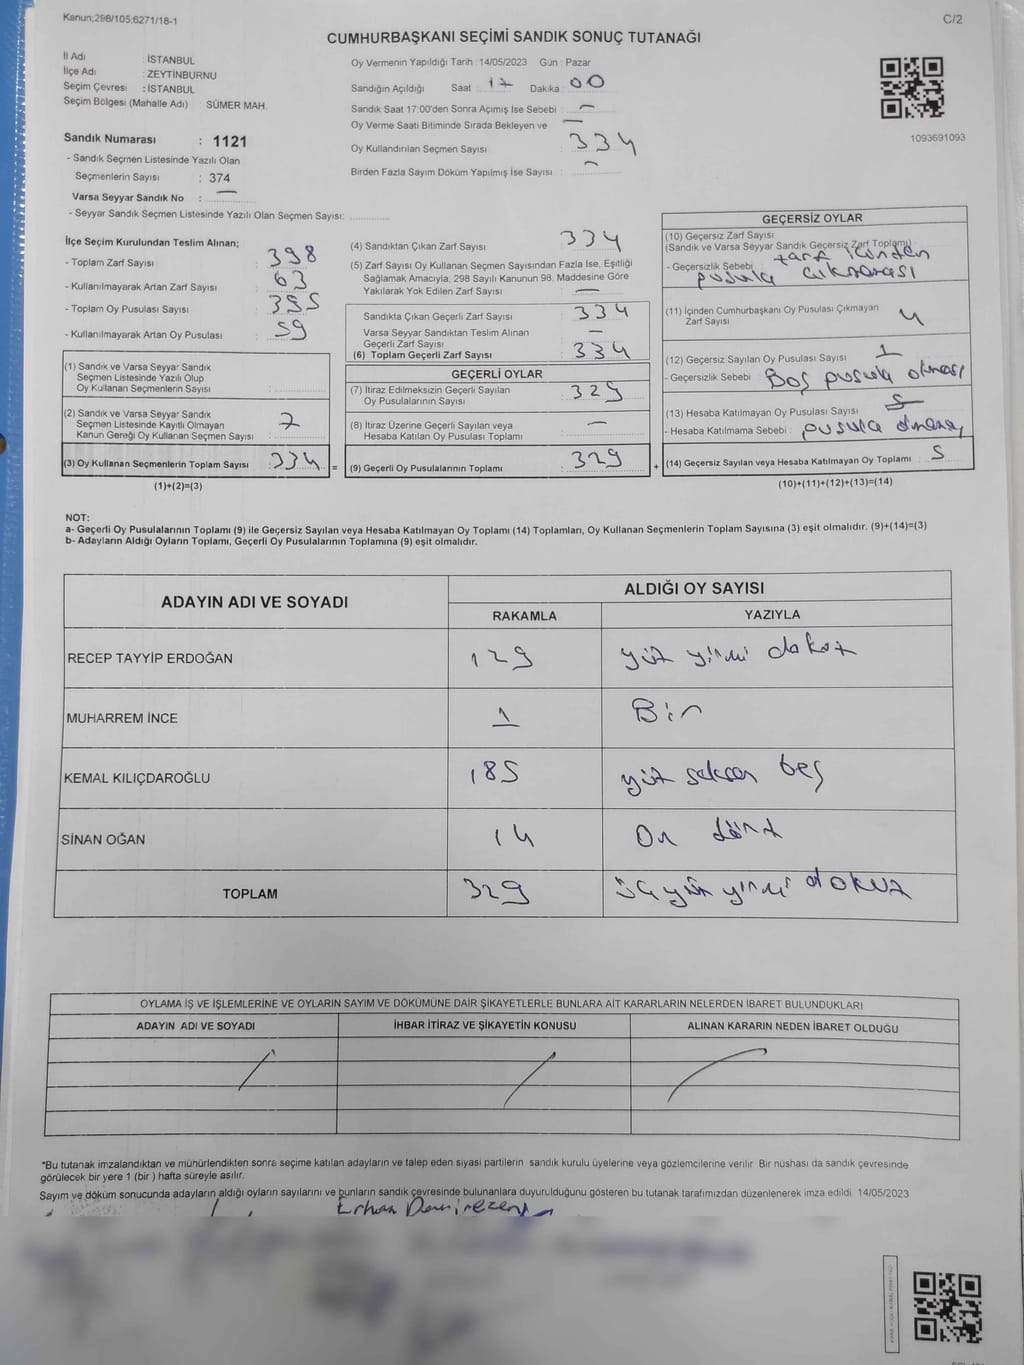 Kanun;298/105;6271/18-1
C/2
CUMHURBAŞKANI SEÇİMİ SANDIK SONUÇ TUTANAĞI
İl Adı : İSTANBUL
İlçe Adı : ZEYTİNBURNU
Seçim Çevresi : İSTANBUL
Seçim Bölgesi (Mahalle Adı) : SÜMER MAH.
Oy Vermenin Yapıldığı Tarih : 14/05/2023 Gün : Pazar
Sandığın Açıldığı Saat 17 Dakika 00
Sandık Saat 17:00'den Sonra Açımış İse Sebebi : —
Oy Verme Saati Bitiminde Sırada Bekleyen ve —
Oy Kullandırılan Seçmen Sayısı : 334
Birden Fazla Sayım Döküm Yapılmış İse Sayısı : —
1093691093
Sandık Numarası : 1121
- Sandık Seçmen Listesinde Yazılı Olan
Seçmenlerin Sayısı : 374
Varsa Seyyar Sandık No : —
- Seyyar Sandık Seçmen Listesinde Yazılı Olan Seçmen Sayısı:
İlçe Seçim Kurulundan Teslim Alınan;
- Toplam Zarf Sayısı : 398
- Kullanılmayarak Artan Zarf Sayısı : 63
- Toplam Oy Pusulası Sayısı : 395
- Kullanılmayarak Artan Oy Pusulası : 59
(1) Sandık ve Varsa Seyyar Sandık
Seçmen Listesinde Yazılı Olup
Oy Kullanan Seçmenlerin Sayısı :
(2) Sandık ve Varsa Seyyar Sandık
Seçmen Listesinde Kayıtlı Olmayan
Kanun Gereği Oy Kullanan Seçmen Sayısı : 7
(3) Oy Kullanan Seçmenlerin Toplam Sayısı : 334 =
(1)+(2)=(3)
(4) Sandıktan Çıkan Zarf Sayısı : 334
(5) Zarf Sayısı Oy Kullanan Seçmen Sayısından Fazla İse, Eşitliği
Sağlamak Amacıyla, 298 Sayılı Kanunun 98. Maddesine Göre
Yakılarak Yok Edilen Zarf Sayısı : —
Sandıkta Çıkan Geçerli Zarf Sayısı : 334
Varsa Seyyar Sandıktan Teslim Alınan
Geçerli Zarf Sayısı : —
(6) Toplam Geçerli Zarf Sayısı : 334
GEÇERLİ OYLAR
(7) İtiraz Edilmeksizin Geçerli Sayılan
Oy Pusulalarının Sayısı : 329
(8) İtiraz Üzerine Geçerli Sayılan veya
Hesaba Katılan Oy Pusulası Toplamı : —
(9) Geçerli Oy Pusulalarının Toplamı : 329 +
GEÇERSİZ OYLAR
(10) Geçersiz Zarf Sayısı
(Sandık ve Varsa Seyyar Sandık Geçersiz Zarf Toplamı)
- Geçersizlik Sebebi : zarf içinden
pusula çıkmaması
(11) İçinden Cumhurbaşkanı Oy Pusulası Çıkmayan
Zarf Sayısı : 4
(12) Geçersiz Sayılan Oy Pusulası Sayısı : 1
- Geçersizlik Sebebi : Boş pusula olması
(13) Hesaba Katılmayan Oy Pusulası Sayısı :
- Hesaba Katılmama Sebebi : pusula
(14) Geçersiz Sayılan veya Hesaba Katılmayan Oy Toplamı : 5
(10)+(11)+(12)+(13)=(14)
NOT:
a- Geçerli Oy Pusulalarının Toplamı (9) ile Geçersiz Sayılan veya Hesaba Katılmayan Oy Toplamı (14) Toplamları, Oy Kullanan Seçmenlerin Toplam Sayısına (3) eşit olmalıdır. (9)+(14)=(3)
b- Adayların Aldığı Oyların Toplamı, Geçerli Oy Pusulalarının Toplamına (9) eşit olmalıdır.
ADAYIN ADI VE SOYADI
ALDIĞI OY SAYISI
RAKAMLA YAZIYLA
RECEP TAYYİP ERDOĞAN 129 yüz yirmi dokuz
MUHARREM İNCE 1 Bir
KEMAL KILIÇDAROĞLU 185 yüz seksen beş
SİNAN OĞAN 14 On dört
TOPLAM 329 üç yüz yirmi dokuz
OYLAMA İŞ VE İŞLEMLERİNE VE OYLARIN SAYIM VE DÖKÜMÜNE DAİR ŞİKAYETLERLE BUNLARA AİT KARARLARIN NELERDEN İBARET BULUNDUKLARI
ADAYIN ADI VE SOYADI İHBAR İTİRAZ VE ŞİKAYETİN KONUSU ALINAN KARARIN NEDEN İBARET OLDUĞU
*Bu tutanak imzalandıktan ve mühürlendikten sonra seçime katılan adayların ve talep eden siyasi partilerin sandık kurulu üyelerine veya gözlemcilerine verilir. Bir nüshası da sandık çevresinde
görülecek bir yere 1 (bir) hafta süreyle asılır.
Sayım ve döküm sonucunda adayların aldığı oyların sayılarını ve bunların sandık çevresinde bulunanlara duyurulduğunu gösteren bu tutanak tarafımızdan düzenlenerek imza edildi. 14/05/2023
Erhan Demirezen